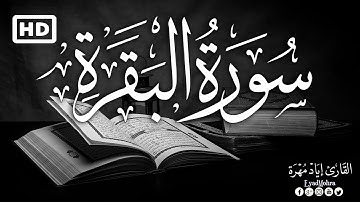 HD
سُورَةُ البَقَرَة
القَارِئ إيَاد مُهْرَة
EyadMohra